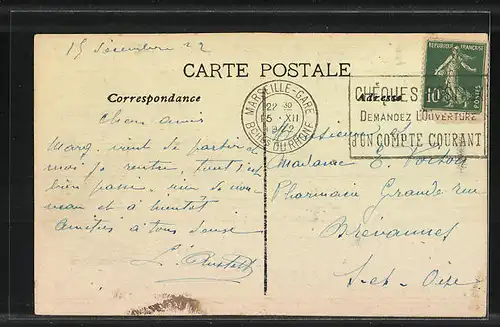 15 décembre 22
CARTE POSTALE
Correspondance
Adresse
MARSEILLE-GARE
22 30
15 - XII
BCHES DU RHONE
RÉPUBLIQUE FRANÇAISE
10
POSTES
CHÈQUES
DEMANDEZ L'OUVERTURE
D'UN COMPTE COURANT
Chers amis
Marg. vient de partir et
moi je rentre, tout s'est
bien passé, rien de nou-
veau et à bientôt
Amitiés à tous deux
Monsieur et
Madame E.
Pharmacien Grande rue
Brévannes
S-et-Oise